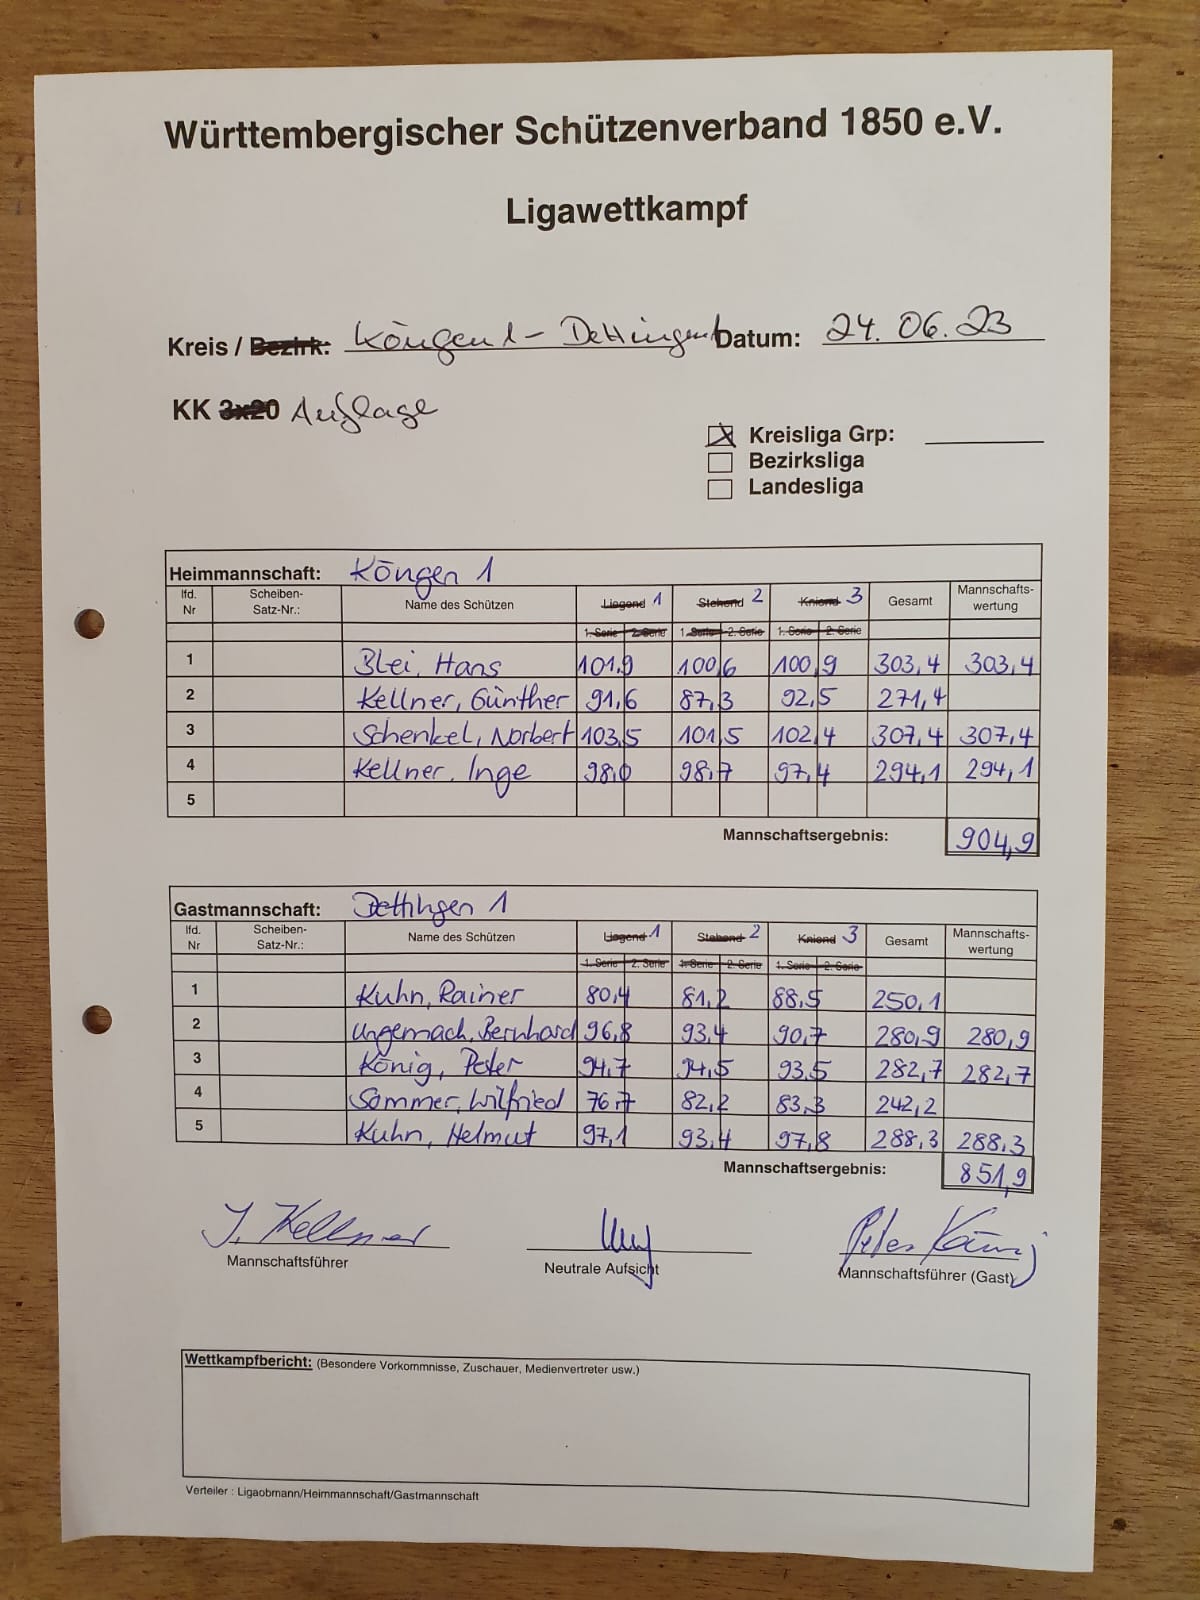 Württembergischer Schützenverband 1850 e.V.
Ligawettkampf
Kreis / Bezirk: Köngen 1 - Dettingen 1 Datum: 24. 06. 23
KK 3x20 Auflage
Kreisliga Grp:
Bezirksliga
Landesliga
Heimmannschaft: Köngen 1
lfd. Nr Scheiben-Satz-Nr.: Name des Schützen Liegend 1 Stehend 2 Kniend 3 Gesamt Mannschafts-wertung
1. Serie 2. Serie 1. Serie 2. Serie 1. Serie 2. Serie
1 Blei, Hans 101,9 100,6 100,9 303,4 303,4
2 Kellner, Günther 91,6 87,3 92,5 271,4
3 Schenkel, Norbert 103,5 101,5 102,4 307,4 307,4
4 Kellner, Inge 98,0 98,7 97,4 294,1 294,1
5
Mannschaftsergebnis: 904,9
Gastmannschaft: Dettingen 1
lfd. Nr Scheiben-Satz-Nr.: Name des Schützen Liegend 1 Stehend 2 Kniend 3 Gesamt Mannschafts-wertung
1. Serie 2. Serie 1. Serie 2. Serie 1. Serie 2. Serie
1 Kuhn, Rainer 80,4 81,2 88,5 250,1
2 Ungemach, Bernhard 96,8 93,4 90,7 280,9 280,9
3 König, Peter 94,7 94,5 93,5 282,7 282,7
4 Sommer, Wilfried 76,7 82,2 83,3 242,2
5 Kuhn, Helmut 97,1 93,4 97,8 288,3 288,3
Mannschaftsergebnis: 851,9
I. Kellner Peter König
Mannschaftsführer Neutrale Aufsicht Mannschaftsführer (Gast)
Wettkampfbericht: (Besondere Vorkommnisse, Zuschauer, Medienvertreter usw.)
Verteiler : Ligaobmann/Heimmannschaft/Gastmannschaft